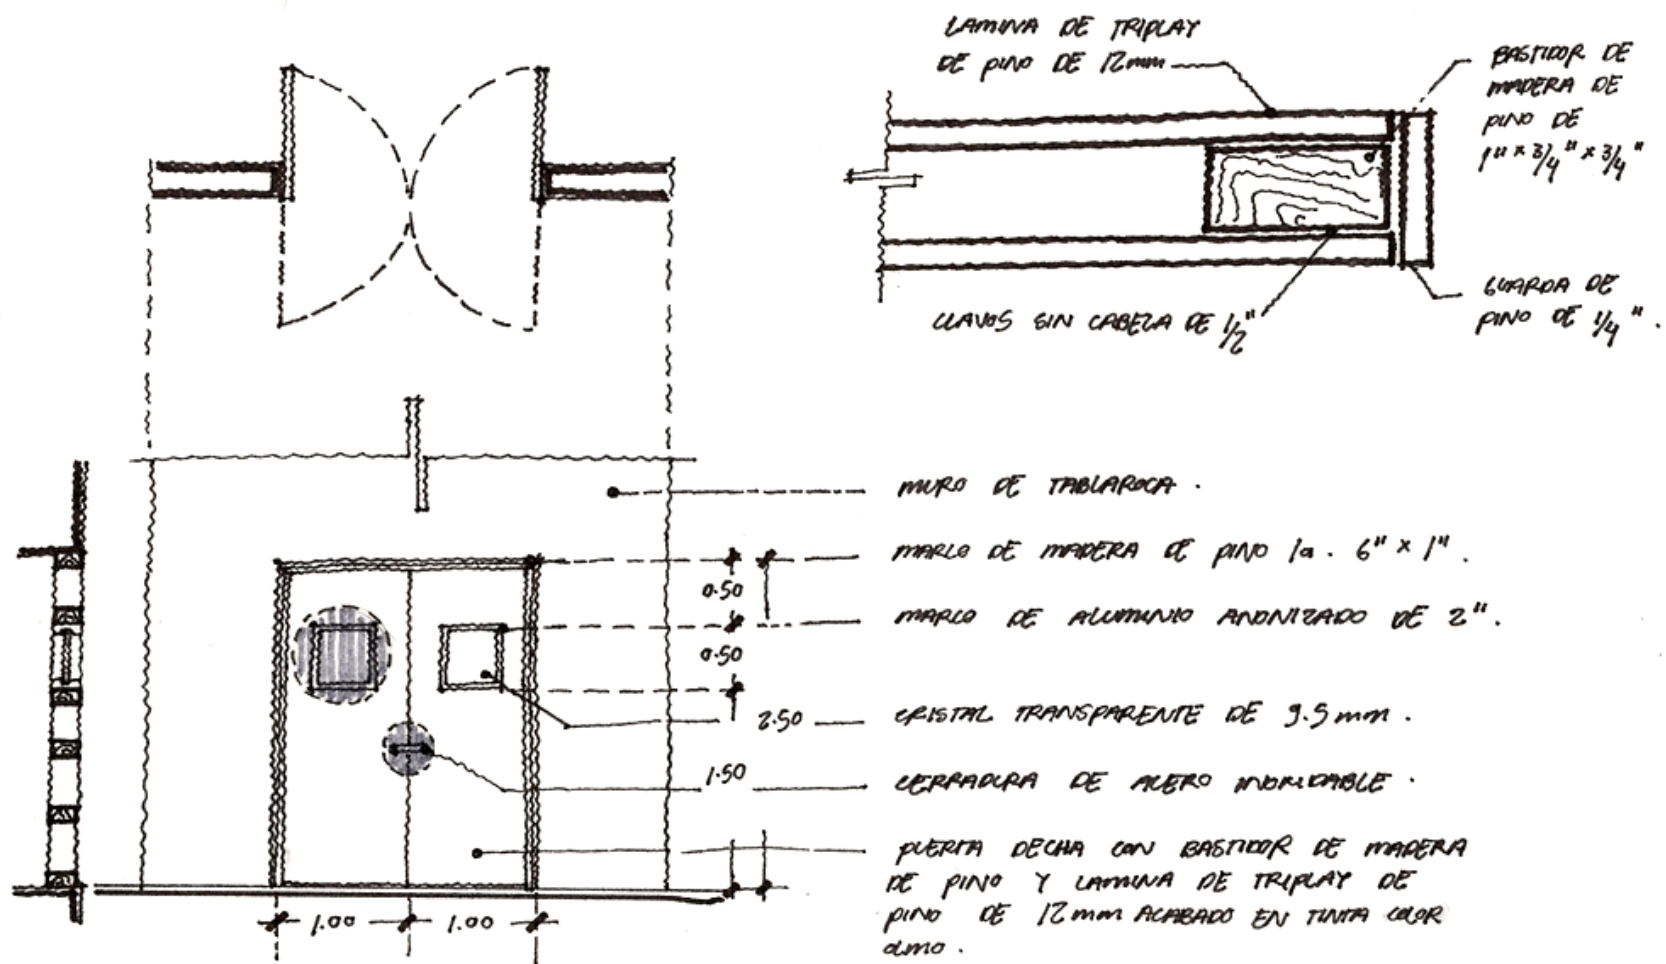 LAMINA DE TRIPLAY
DE PINO DE 12mm
BASTIDOR DE
MADERA DE
PINO DE
1" x 3/4" x 3/4"
CLAVOS SIN CABEZA DE 1/2"
GUARDA DE
PINO DE 1/4".
MURO DE TABLAROCA.
MARCO DE MADERA DE PINO 1a. 6" x 1".
0.50
MARCO DE ALUMINIO ANONIZADO DE 2".
0.50
2.50
CRISTAL TRANSPARENTE DE 9.5 mm.
1.50
CERRADURA DE ACERO INOXIDABLE.
PUERTA DECHA CON BASTIDOR DE MADERA
DE PINO Y LAMINA DE TRIPLAY DE
PINO DE 12mm ACABADO EN TINTA COLOR
OLMO.
1.00
1.00